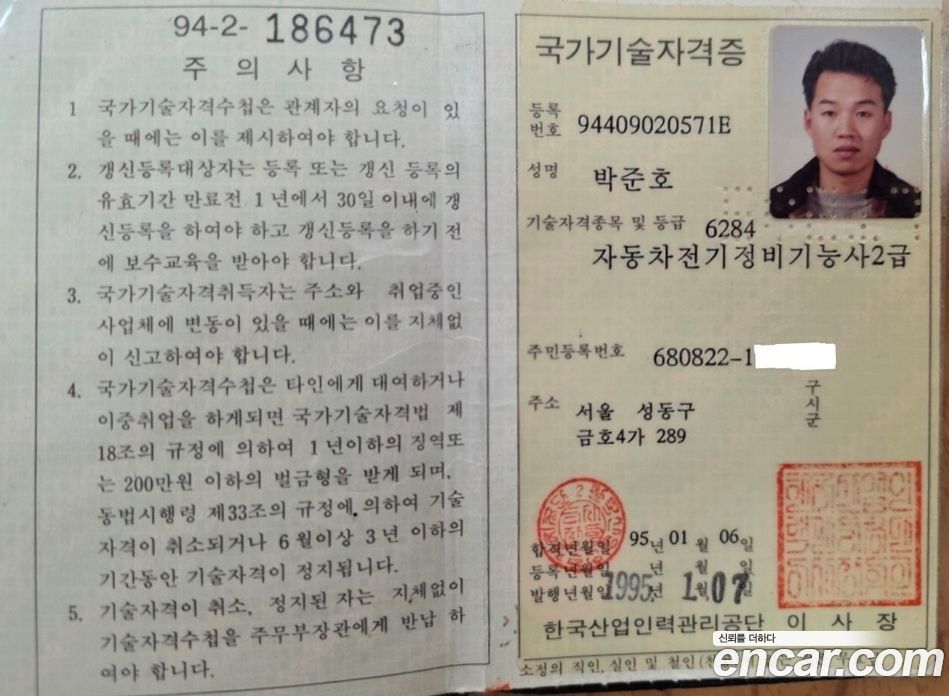 94-2-186473
주 의 사 항
1 국가기술자격수첩은 관계자의 요청이 있
을 때에는 이를 제시하여야 합니다.
2. 갱신등록대상자는 등록 또는 갱신 등록의
유효기간 만료전 1년에서 30일 이내에 갱
신등록을 하여야 하고 갱신등록을 하기 전
에 보수교육을 받아야 합니다.
3. 국가기술자격취득자는 주소와 취업중인
사업체에 변동이 있을 때에는 이를 지체없
이 신고하여야 합니다.
4. 국가기술자격수첩은 타인에게 대여하거나
이중취업을 하게되면 국가기술자격법 제
18조의 규정에 의하여 1년이하의 징역또
는 200만원 이하의 벌금형을 받게 되며,
동법시행령 제33조의 규정에 의하여 기술
자격이 취소되거나 6월이상 3년 이하의
기간동안 기술자격이 정지됩니다.
5. 기술자격이 취소, 정지된 자는 지체없이
기술자격수첩을 주무부장관에게 반납 하
여야 합니다.
국가기술자격증
등록번호 94409020571E
성명 박준호
기술자격종목 및 등급 6284
자동차전기정비기능사2급
주민등록번호 680822-1
주소 서울 성동구
금호4가 289
구
시
군
합격년월일 95년 01월 06일
등록년월일 년 월 일
발행년월일 1995년 1월 07
한국산업인력관리공단 이 사 장
소정의 직인, 실인 및 철인(
신뢰를 더하다
encar.com